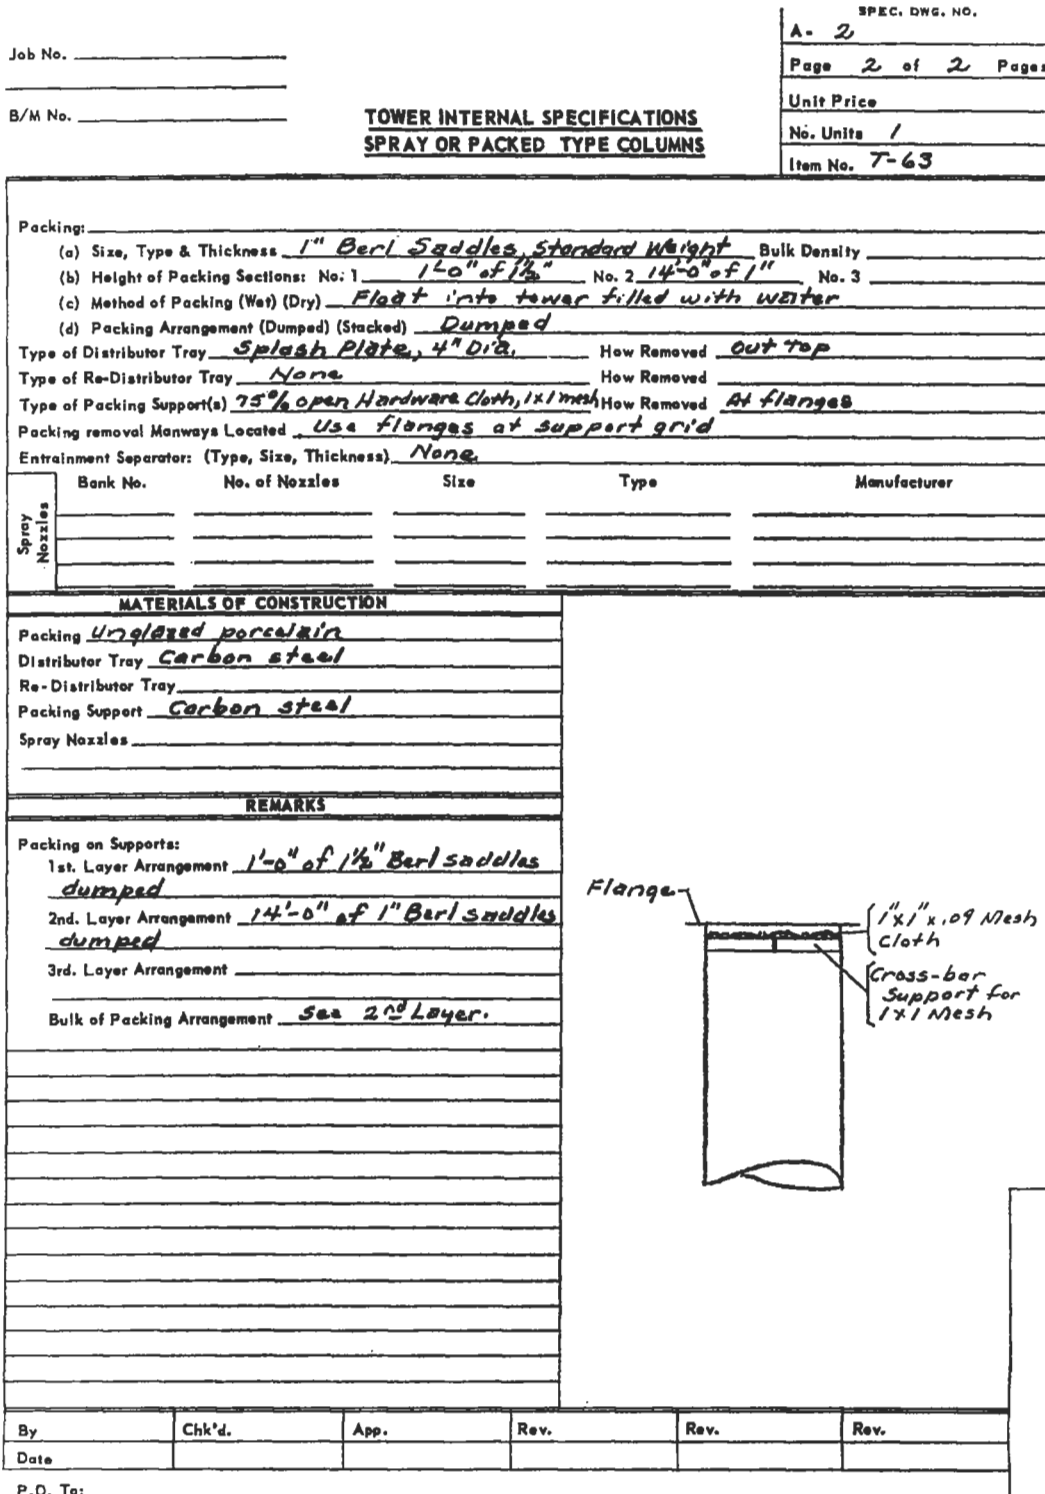 SPEC. DWG. NO.
A- 2
Job No.
Page 2 of 2 Pages
Unit Price
B/M No.
TOWER INTERNAL SPECIFICATIONS
No. Units 1
SPRAY OR PACKED TYPE COLUMNS
Item No. T-63
Packing:
(a) Size, Type & Thickness 1" Berl Saddles, Standard Weight Bulk Density
(b) Height of Packing Sections: No. 1 1'-0" of 1½" No. 2 14'-0" of 1" No. 3
(c) Method of Packing (Wet) (Dry) Float into tower filled with water
(d) Packing Arrangement (Dumped) (Stacked) Dumped
Type of Distributor Tray Splash Plate, 4" Dia. How Removed Out top
Type of Re-Distributor Tray None How Removed
Type of Packing Support(s) 75% open Hardware Cloth, 1x1 mesh How Removed At flanges
Packing removal Manways Located Use flanges at support grid
Entrainment Separator: (Type, Size, Thickness) None
Bank No. No. of Nozzles Size Type Manufacturer
Spray Nozzles
MATERIALS OF CONSTRUCTION
Packing Unglazed porcelain
Distributor Tray Carbon steel
Re-Distributor Tray
Packing Support Carbon steel
Spray Nozzles
REMARKS
Packing on Supports:
1st. Layer Arrangement 1'-0" of 1½" Berl saddles
dumped
2nd. Layer Arrangement 14'-0" of 1" Berl saddles
dumped
3rd. Layer Arrangement
Bulk of Packing Arrangement See 2nd Layer.
Flange
1"x1"x.09 Mesh
Cloth
Cross-bar
Support for
1x1 Mesh
By Chk'd. App. Rev. Rev. Rev.
Date
P.O. To: